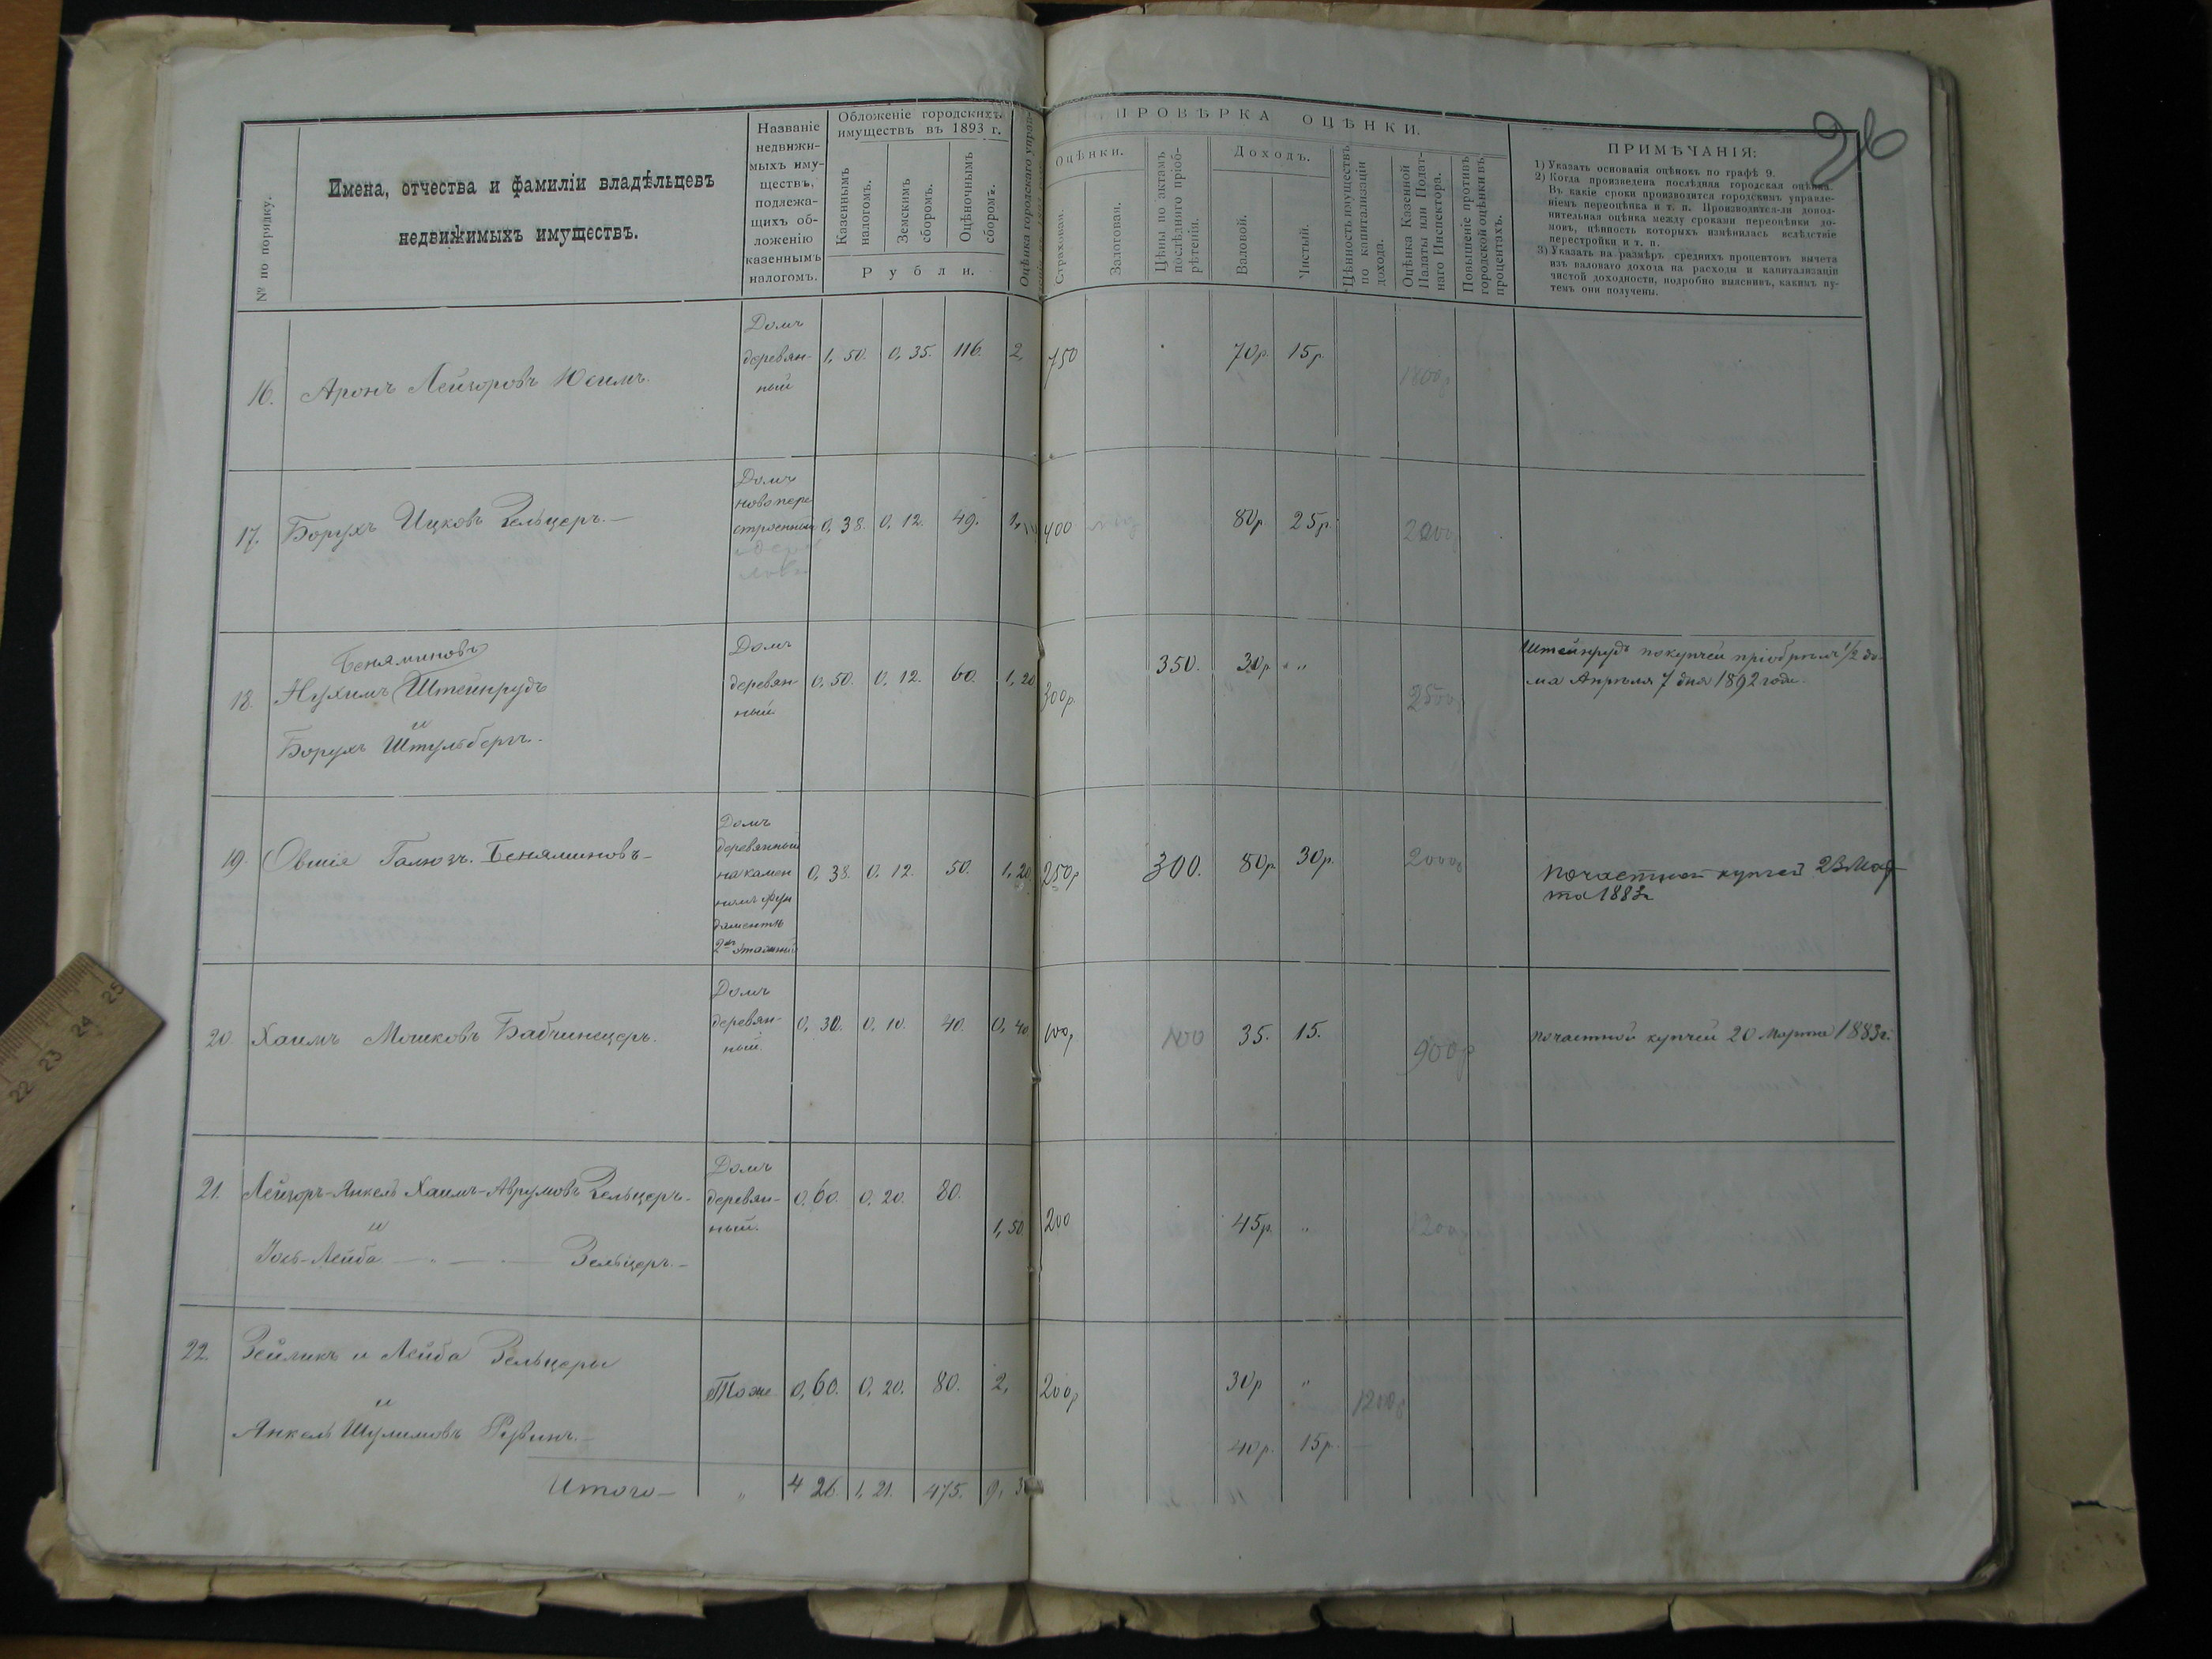 26
№ по порядку.
Имена, отчества и фамиліи владѣльцевъ
недвижимыхъ имуществъ.
Названіе
недвижи-
мыхъ иму-
ществъ,
подлежа-
щихъ об-
ложенію
казеннымъ
налогомъ.
Обложеніе городскихъ
имуществъ въ 1893 г.
Казеннымъ
налогомъ.
Земскимъ
сборомъ.
Оцѣночнымъ
сборомъ.
Рубли.
Оцѣнка городского управ-
ПРОВѢРКА ОЦѢНКИ.
Оцѣнки.
Страховая.
Залоговая.
Цѣны по актамъ
послѣдняго пріоб-
рѣтенія.
Доходъ.
Валовой.
Чистый.
Цѣнность имуществъ
по капитализаціи
дохода.
Оцѣнка Казенной
Палаты или Подат-
наго Инспектора.
Повышеніе противъ
городской оцѣнки въ
процентахъ.
ПРИМѢЧАНІЯ:
1) Указать основанія оцѣнокъ по графѣ 9.
2) Когда произведена послѣдняя городская оцѣнка.
Въ какіе сроки производится городскимъ управле-
ніемъ переоцѣнка и т. п. Производится-ли допол-
нительная оцѣнка между сроками переоцѣнки до-
мовъ, цѣнность которыхъ измѣнилась вслѣдствіе
перестройки и т. п.
3) Указать на размѣръ среднихъ процентовъ вычета
изъ валоваго дохода на расходы и капитализаціи
чистой доходности, подробно выяснивъ, какимъ пу-
темъ они получены.
16. Аронъ Лейзоровъ Юсимъ.
Домъ
деревян-
ный
1, 50. 0, 35. 116. 2, 750 70р. 15р. 1800р
17. Борухъ Ицковъ Зельцеръ.—
Домъ
новопере
строенный
0, 38. 0, 12. 49. 1, 400 80р. 25р. 2000р
18. Беняминовъ
Нухимъ Штейнрудъ
и
Борухъ Штульбергъ.-
Домъ
деревян-
ный.
0, 50. 0, 12. 60. 1, 20 300р. 350. 30р. „ 2500
Штейнрудъ покупчей пріобрѣлъ 1/2 до-
ма Апрѣля 7 дня 1892 года.
19. Овшія Галюзъ. Беняминовъ—
Домъ
деревянный
на камен
номъ фун
даментѣ
2хъ этажный
0, 38. 0, 12. 50. 1, 20 250р 300. 80р 30р. 2000р
почастной купчей 23 Мар
та 1883г
20 Хаимъ Мошковъ Бабчинецеръ.
Домъ
деревян-
ный.
0, 30. 0, 10. 40. 0, 40 100р 100 35. 15. 900р
почастной купчей 20 Марта 1883г.
21. Лейзоръ-Янкель Хаимъ-Аврумовъ Зельцеръ-
и
Іось-Лейба — „ — „ — Зельцеръ.—
Домъ
деревян-
ный.
0, 60. 0, 20. 80. 1, 50. 200 45р. „
22. Зейликъ и Лейба Зельцеры
и
Янкель Шулимовъ Рувинъ.—
Тоже 0, 60. 0, 20. 80. 2, 200р 30р „ 1200р
40р. 15р.
Итого— „ 4 26. 1, 21. 475. 9, 3
22 23 24 25